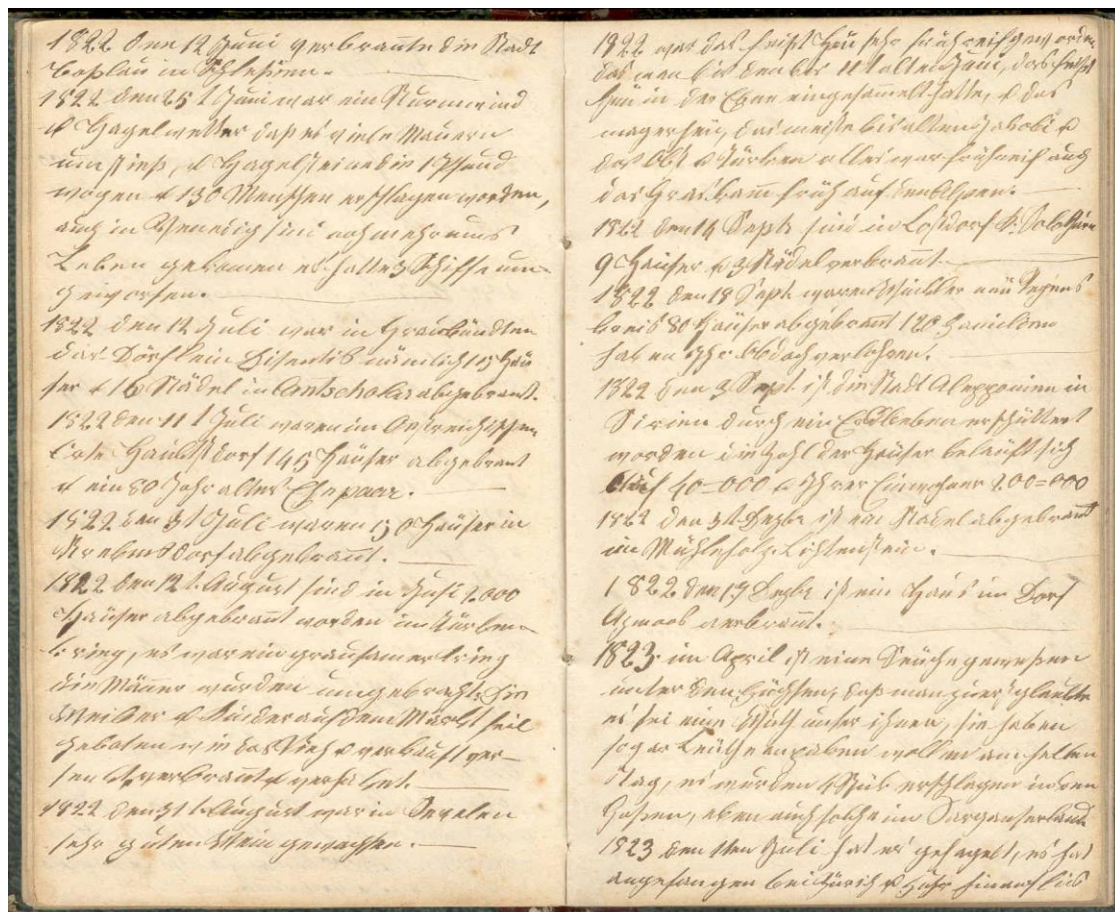 1822 den 12 Juni verbrannte die Stadt
in Schlesien.
1822 den 25 t Juni war ein Sturmwind
& Hagelwetter daß es viele Mauern
umstieß, & Hagelsteine die 1 Pfund
wogen & 130 Menschen erschlagen worden,
auch in Venedig sind noch mehr ums
Leben gekomen es hatte Schiffe um-
geworfen.
1822 den 12 Juli war in Graubündten
das Dörflein Disentis nämlich 15 Häu
ser & 16 Städel in abgebrant.
1822 den 11 t Juli waren im Östreichischen
dorf 145 Häuser abgebrant
& ein 80 Jahr altes Ehepaar.
1822 den 31 Juli waren 130 Häuser in
dorf abgebrannt.
1822 den 12 t. August sind in 2000
Häuser abgebrannt worden im Türken-
krieg, es war ein grausamer krieg
die Männer wurden umgebracht die
Weiber & Kinder auf dem Markt feil
geboten wie das Vieh & verkauft ver-
verbrannt &
1822 den 31 t. August war in Sevelen
sehr guten Wein gewachsen.
1822 war das feißt Heu sehr frühreif geworden
das man bis den 11 t alten Juni, das feißt
Heu in der Ebne eingesammelt hatte, & das
magerheu, das meiste bis alten Jakobi &
das Obst & Türken alles war frühreif auch
das Gras kam früh auf den Alpen.
1822 den 14 Septb sind in Lostdorf Kt. Solothurn
9 Häuser & 3 Städel verbrannt.
1822 den 18 Septb waren
kreis 80 Häuser abgebrannt 120 Familien
haben Ihr Obdach verlohren.
1822 den 3 Sept. ist die Stadt Aleppo in
Sirien durch ein Erdbeben erschüttert
worden die Zahl der Häuser beläuft sich
Auf 40=000 & Ihrer Einwohner 200=000
1822 den 3 t. Dezbr ist ein Stadel abgebrannt
im Mühleholz Lichtenstein.
1822 den 17 Dezbr ist ein Haus im Dorf
Azmoos verbrannt.
1823 im April ist eine Seuche gewesen
unter den Füchsen, daß man zuerst glaubte
es sei eine Wuth unter ihnen, sie haben
sogar Leuthe angraben wollen am hellen
Tag, es wurden 4 Stük erschlagen in den
eben auch solche im Sarganserland
1823 den 1ten Juli hat es gehagelt, es hat
angefangen bei Zürich &